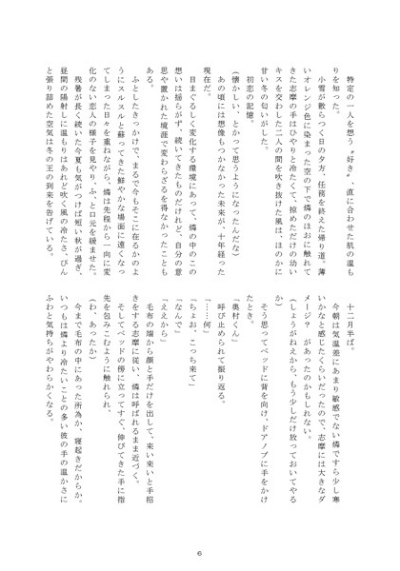 特定の一人を想う“好き”、直に合わせた肌の温も
りを知った。
小雪が散らつく日の夕方、任務を終えた帰り道。薄
いオレンジ色に染まった空の下で燐のほおに触れて
きた志摩の手はひやりと冷たくて、掠めただけの幼い
キスを交わした二人の間を吹き抜けた風は、ほのかに
甘い冬の匂いがした。
初恋の記憶。
（懐かしい、とかって思うようになったんだな）
あの頃には想像もつかなかった未来が、十年経った
現在だ。
目まぐるしく変化する環境にあって、燐の中のこの
想いは揺らがず、続いてきたものだけれど、自分の意
思や置かれた境遇で変わらざるを得なかったことも
ある。
ふとしたきっかけで、まるで今もそこに在るかのよ
うにスルスルと蘇ってきた鮮やかな場面に遠くなっ
てしまった日々を重ねながら、燐は先程から一向に変
化のない恋人の様子を見やり、ふ、と口元を緩ませた。
残暑が長く続いた今夏も気がつけば短い秋が過ぎ、
昼間の陽射しに温もりはあれど吹く風の冷たさ、ぴん
と張り詰めた空気は冬の王の到来を告げている。
十二月半ば。
今朝は気温差にあまり敏感でない燐ですら少し寒
いかなと感じたくらいだったので、志摩には大きなダ
メージ？　があったのかもしれない。
（しょうがねえから、もう少しだけ放っておいてやる
か）
そう思ってベッドに背を向け、ドアノブに手をかけ
たとき。
「奥村くん」
呼び止められて振り返る。
「……何」
「ちょお、こっち来て」
「なんで」
「ええから」
毛布の端から顔と手だけを出して、来い来いと手招
きをする志摩に従い、燐は呼ばれるまま近づく。
そしてベッドの傍に立ってすぐ、伸びてきた手に指
先を包みこむように触れられ、
（わ、あったか）
今まで毛布の中にあった所為か、寝起きだからか。
いつもは燐より冷たいことの多い彼の手の温かさに
ふわと気持ちがやわらかくなる。
6